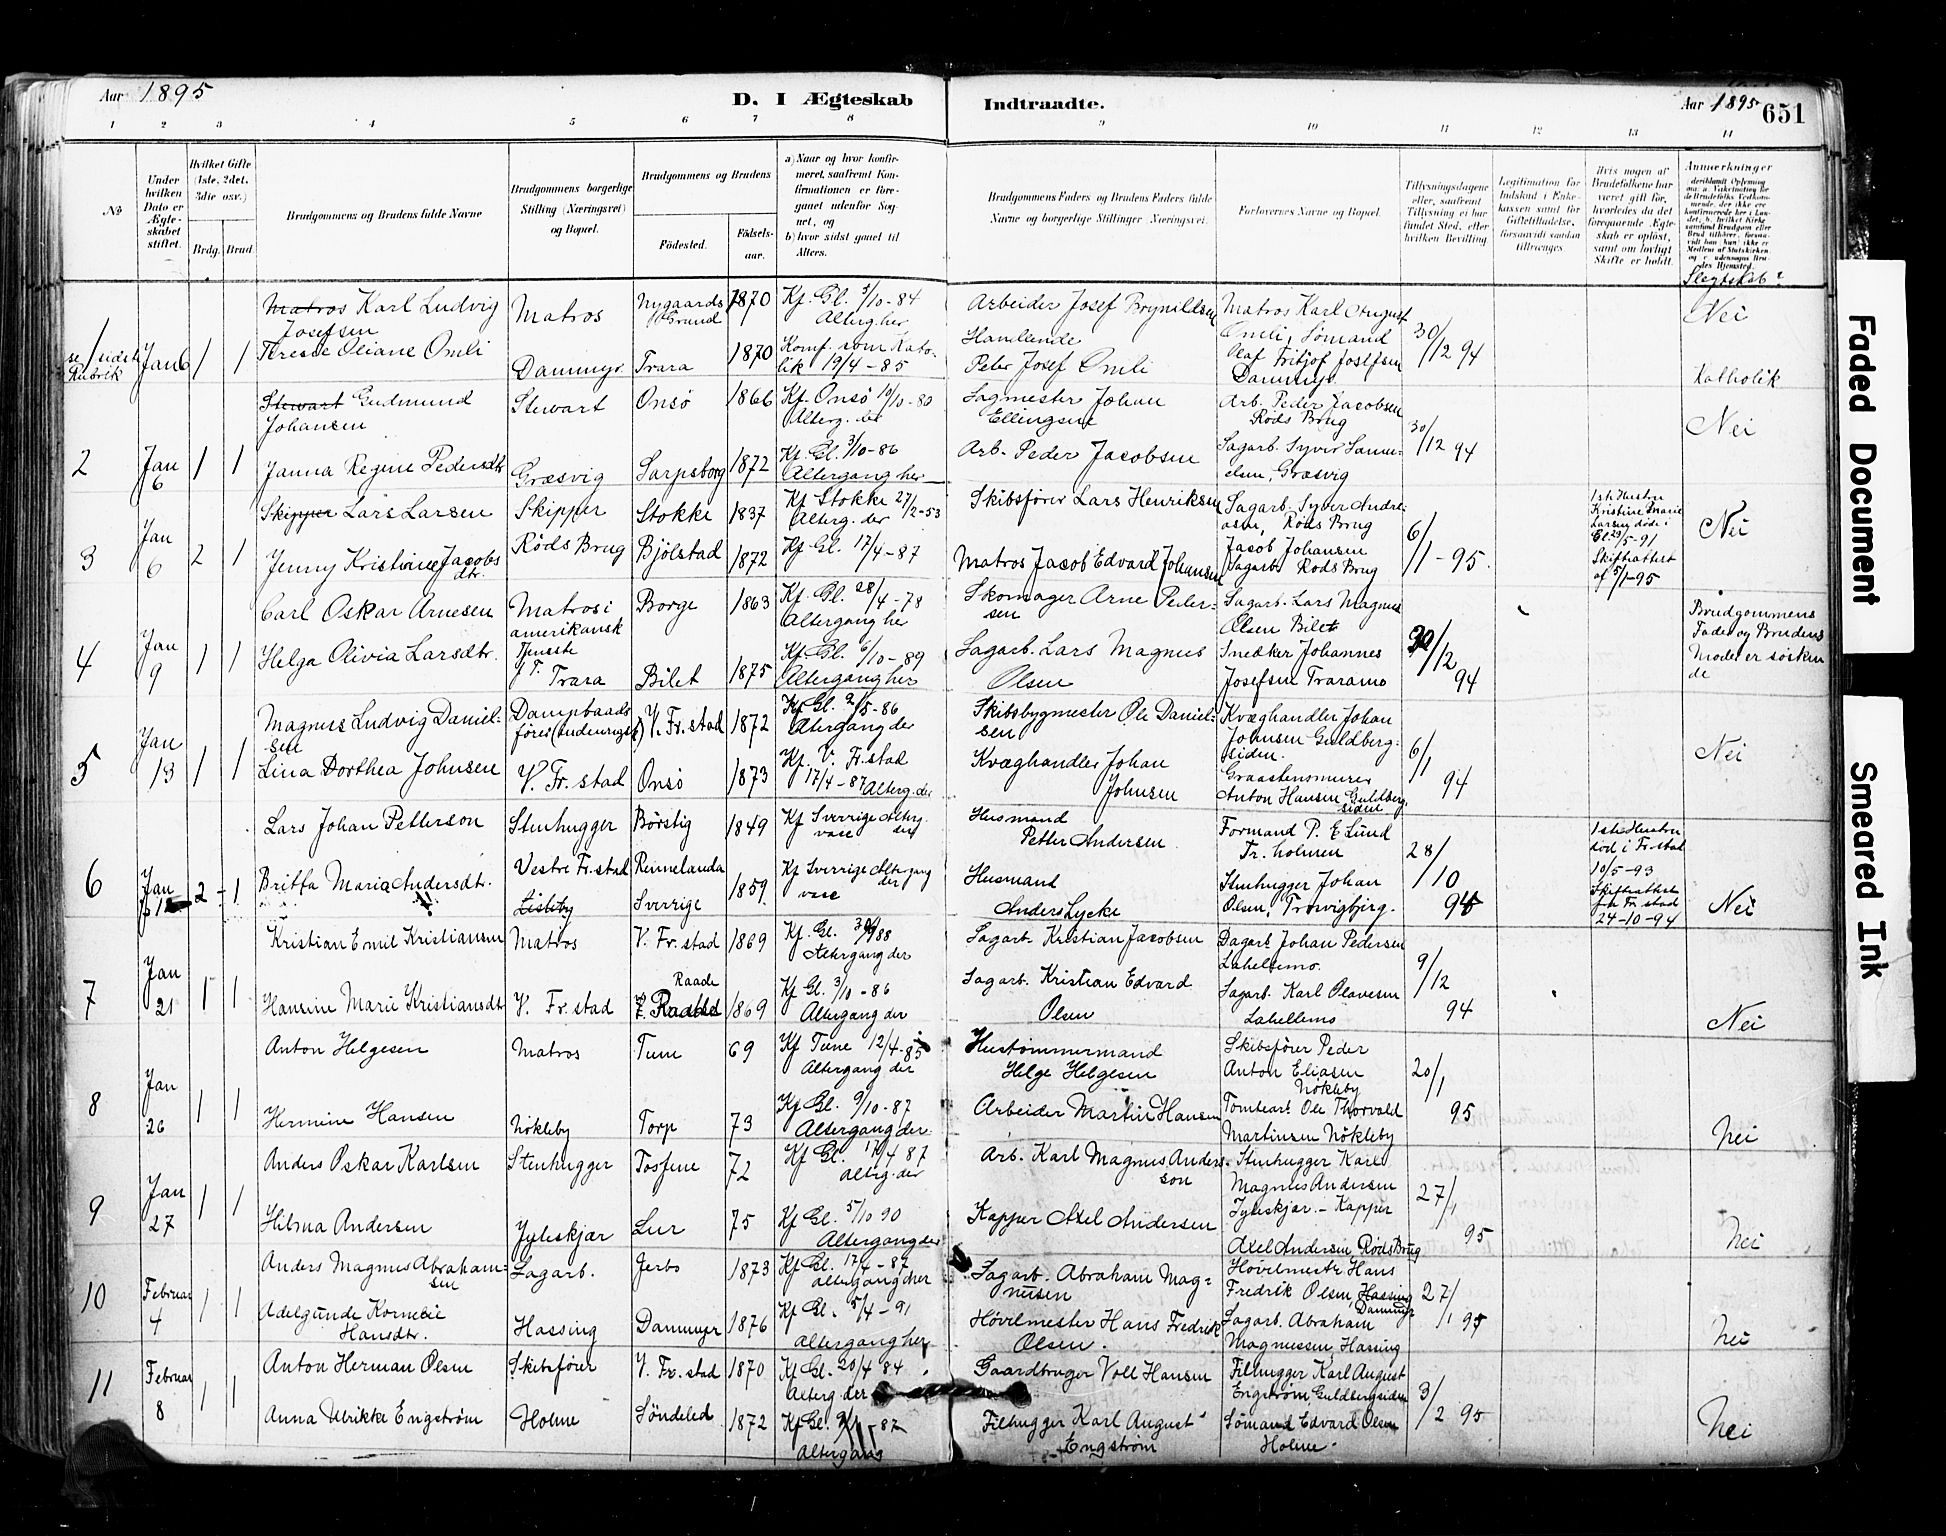 Aar 1895
D. I Ægteskab Indtraadte.
Aar 1895 651
1 2 3 4 5 6 7 8 9 10 11 12 13 14
No
Under hvilken Dato er Ægteskabet stiftet.
Hvilket Gifte (1ste, 2det, 3die osv.)
Brdg. Brud.
Brudgommens og Brudens fulde Navne
Brudgommens borgerlige Stilling (Næringsvei) og Bopæl.
Brudgommens og Brudens
Fødested.
Fødselsaar.
a) Naar og hvor konfirmeret, samt om Konfirmationen er foregaaet udenfor Sognet, og
b) hvor sidst gaaet til Alters.
Brudgommens Faders og Brudens Faders fulde Navne og borgerlige Stillinger (Næringsvei).
Forlovernes Navne og Bopæl.
Tillysningsdagene eller, saafremt Tillysning ei har fundet Sted, efter hvilken Bevilling
Legitimation for Indskud i Enkekassen samt for Giftetilladelse, forsaavidt saadan tiltrænges
Hvis nogen af Brudefolkene har været gift før, hvorledes da det foregaaende Ægteskab er opløst, samt om lovligt Skifte er holdt.
Anmerkninger
Slegtskab?
se 1 sidste Rubrik
Jan 6 1 1
Matros Karl Ludvig Josefsen
Matros
Nygaards Grund
1870
Kf. Gl. 5/10-84
Alterg. her
Arbeider Josef Brynildsen
Hanllende
Matros Karl August Omli, Sømand
30/12 94
Nei
Terese Oliane Omli
Dammyr
Trara
1870
Konf. som Katolik 19/4-85
Peter Josef Omli
Olaf Fritjof Josefsen Dammyr
Katholik
2 Jan 6 1 1
Stewart Gudmund Johansen
Stewart
Onsö
1866
Kf. Onsö 10/10-80
Alterg. der
Sagmester Johan Ellingsen
Arb. Peder Jacobsen Røds Brug
30/12 94
Nei
Janna Regine Pedersdtr
Græsvig
Sarpsborg
1872
Kf. Gl. 3/10-86
Altergang her
Arb. Peder Jacobsen
Sagarb. Syver Samuelsen, Græsvig
3 Jan 6 2 1
Skipper Lars Larsen
Skipper
Stokke
1837
Kf Stokke 27/2-53
Alterg. der
Skibsfører Lars Henriksen
Sagarb. Syver Andreasen, Røds Brug
6/1-95.
1ste Hustru Kristine Marie Larsen døde i Gl. 29/5-91
Skifteattest af 5/1-95
Nei
Jenny Kristine Jacobsdtr.
Røds Brug
Bjölstad
1872
Kf. Gl. 17/4-87
Matros Jacob Edvard Johansen
Jacob Johansen
Sagarb. Røds Brug
4 Jan 9 1 1
Carl Oskar Arnesen
Matros i amerikansk Tjeneste
Borge
1863
Kf. Gl. 28/4-78
Altergang her
Skomager Arne Pedersen
Sagarb. Lars Magnus Olsen Bilet
30/12 94
Brudgommens Fader og Brudens Moder er söskende
Helga Olivia Larsdtr.
f. T. Trara
Bilet
1875
Kf. Gl. 6/10-89
Altergang her
Sagarb. Lars Magnus Olsen
Snedker Johannes Josefsen Traramo
5 Jan 13 1 1
Magnus Ludvig Danielsen
Dampbaadsfører (indenrigsk)
V. Fr.stad
1872
Kf Gl. 2/5-86
Altergang der
Skibsbygmester Ole Danielsen
Kvæghandler Johan Johnsen Guldbergsiden.
6/1 94
Nei
Lina Dorthea Johnsen
V. Fr.stad
Onsö
1873
Kf. V. Fr.stad 17/4-87 Alterg. der
Kvæghandler Johan Johnsen
Graastensmurer Anton Hansen Guldbergsiden
6 Jan 2 - 1
Lars Johan Petterson
Stenhugger
Börstig
1849
Kf Sverrige
Husmand
Petter Andersen
Formand P. E. Lund
Tr. holmen
28/10 94
1ste Hustru död i Fr.stad 10/5-93
Skifteattest fra Fr.stad 24-10-94
Nei
Britta Maria Andersdtr.
Vestre Fr.stad
Lisleby
Rennelanda Sverrige
1859
Kf Sverrige Altergang der
Husmand
Anders Lycke
Stenhugger Johan Olsen, Trosvigbjerg.
7 Jan 21 1 1
Kristian Emil Kristiansen
Matros
V. Fr.stad
1869
Kf. Gl.
Altergang der
Sagarb. Kristian Jacobsen
Dagarb. Johan Pedersen Lahellemo.
9/12 94
Nei
Hansine Marie Kristiansdtr
V. Fr.stad
Raade
1869
Kf Gl. 3/10-86
Altergang der
Sagarb. Kristian Edvard Olsen
Sagarb. Karl Olavesen Lahellemo
8 Jan 26 1 1
Anton Helgesen
Matros
Tune
69
Kf Tune 12/4-85
Altergang der
Hustømmermand
Helge Helgesen
Skibsfører Peder Anton Eliasen Nökleby
20/1 95
Nei
Hermine Hansen
Nökleby
Torp
73
Kf Gl. 9/10-87
Altergang der.
Arbeider Martin Hansen
Tomtearb. Ole Thorvald Martinsen Nökleby
9 Jan 27 1 1
Anders Oskar Karlsen
Stenhugger
Tosfene
72
Kf Gl. 17/4 87
alterg. der
Arb. Karl Magnus Andersson
Stenhugger Karl Magnus Andersen Jyleskjær. - Kapper
27/1 95
Nei
Hilma Andersen
Jyleskjær
Lur
75
Kf Gl. 5/10 90
Altergang der
Kapper Axel Andersen
Axel Andersen, Røds Brug
10 Februar 4 1 1
Anders Magnus Abrahamsen
Sagarb.
Jerbo
1873
Kf Gl. 17/4-87
altergang her
Sagarb. Abraham Magnusen
Høvlmestr. Hans Fredrik Olsen, Hassing Dammyr
27/1 95
Nei
Adelgunde Kornelie Hansdtr.
Hassing
Dammyr
1876
Kf Gl. 5/4-91
altergang her
Høvlmester Hans Fredrik Olsen.
Sagarb. Abraham Magnussen, Hassing
11 Februar 8 1 1
Anton Herman Olsen
Skibsfører
V. Fr.stad
1870
Kf Gl. 20/4 84
Alterg. der
Gaardbruger Voll Hansen
Filhugger Karl August Engström, Guldbergsiden
3/2 95
Nei
Anna Ulrikke Engström
Holme
Söndeled
1872
Kf Gl. 87
Altergang
Filhugger Karl August Engström
Sömand Edvard Olsen Holme.
Faded Document
Smeared Ink